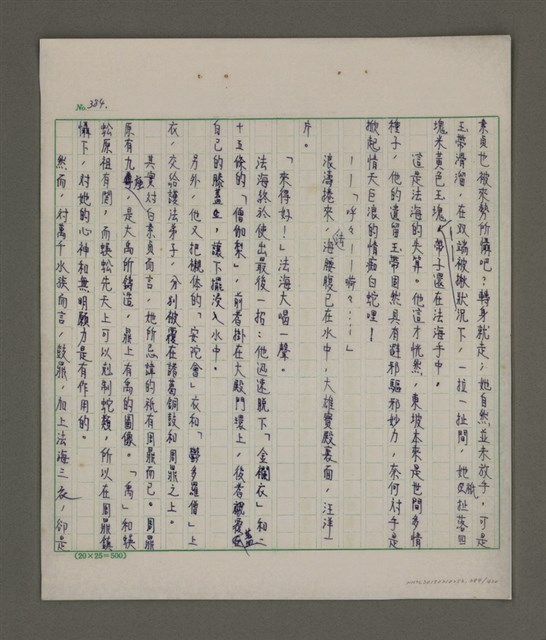 No. 384.
素貞也被來勢所懾吧?轉身就走;她自然並未放手,可是
玉帶滑溜,在双端被揪狀況下,一拉一扯間,她只扯落四
塊米黃色玉塊,帶子還在法海手中。
這是法海的失算。他這才恍然,東坡本來是世間多情
種子,他的遺留玉帶固然具有避邪驅邪妙力,奈何對手是
掀起情天巨浪的情痴白蛇哩!
——「呼々——嘶々……」
浪濤捲來,法海腰腹已在水中,大雄寶殿裏面,汪洋一
片。
「來得好!」法海大喝一聲。
法海終於使出最後一招:他迅速脫下「金襴衣」和二
十五條的「僧伽梨」,前者掛在大殿門環上,後者覆蓋
自己的膝蓋上,讓下襬沒入水中。
另外,他又把襯体的「安陀會」衣和「鬱多羅僧」上
衣,交給護法弟子,分別披覆在諸葛銅鼓和周鼎之上。
其實對白素貞而言,她所忌諱的祇有周鼎而已。周鼎
原有九座,是大禹所鑄造,鼎上有禹的圖像。「禹」和蜈
蚣原祖有関,而蜈蚣先天上可以剋制蛇類,所以在周鼎鎮
懾下,對她的心神和無明願力是有作用的。
然而,對萬千水族而言,鼓鼎,加上法海三衣,卻是
(20×25=500)